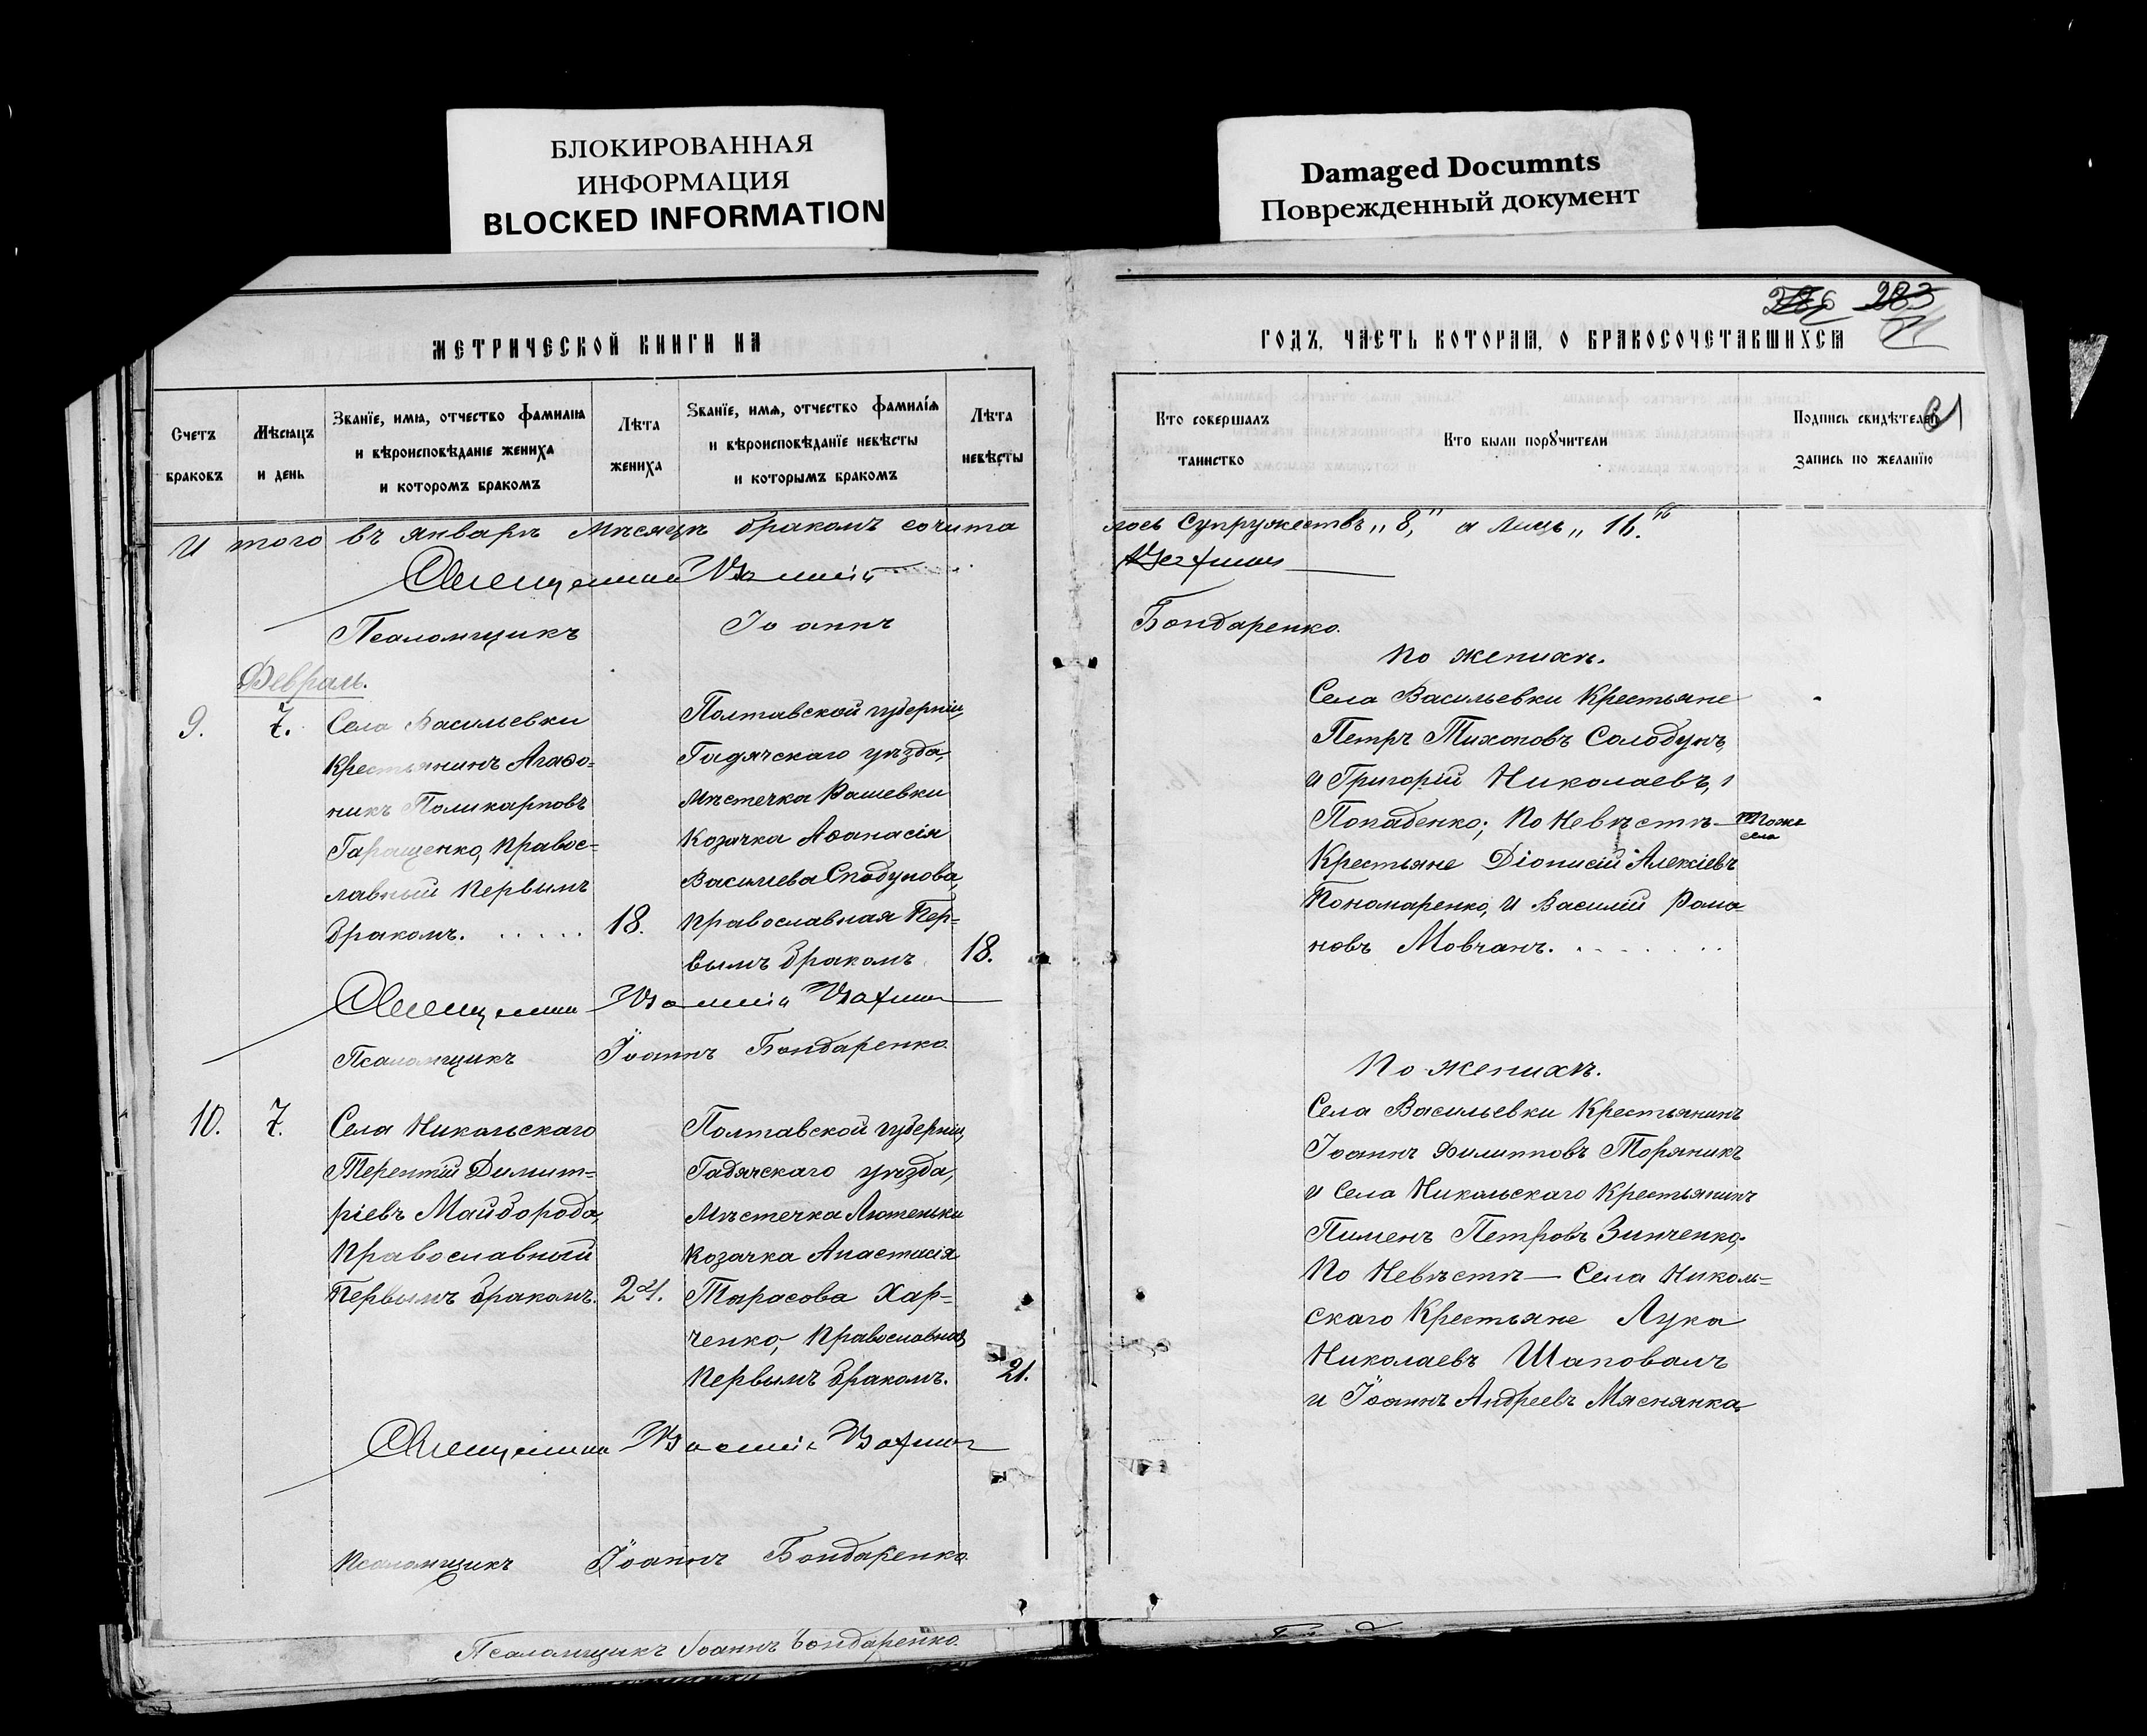 БЛОКИРОВАННАЯ
ИНФОРМАЦИЯ
BLOCKED INFORMATION
Damaged Documnts
Поврежденный документ
283
МЕТРИЧЕСКОЙ КНИГИ НА
ГОДЪ, ЧАСТЬ КОТОРАЯ, О БРАКОСОЧЕТАВШИХСЯ
Счетъ браковъ
Мѣсяцъ и день
Званїе, имя, отчество фамилія
и вѣроисповѣданіе жениха
и которомъ бракомъ
Лѣта жениха
Званїе, имя, отчество фамилїя
и вѣроисповѣданїе невѣсты
и которымъ бракомъ
Лѣта невѣсты
Кто совершалъ таинство
Кто были порꙋчители
Подпись свидѣтелей
запись по желанїю
61
И того въ январѣ мѣсяцѣ бракомъ сочита
лось супружествъ „8," а лицъ „16."
Священникъ Василій
Псаломщикъ Іоаннъ
Бондаренко.
Февраль.
9. 7.
Села Васильевки
Крестьянинъ Агаѳо=
никъ Поликарповъ
Гаращенко, Правос=
лавный Первымъ
бракомъ. . . . . . 18.
Полтавской губерніи,
Гадячскаго уѣзда,
мѣстечка Рашевки
Козачка Аѳанасія
Васильева Сподунова,
Православная Пер=
вымъ бракомъ 18.
По женихѣ.
Села Васильевки Крестьяне
Петръ Тихоновъ Солодунъ,
и Григорій Николаевъ,
Попаденко; По Невѣстѣ — тогоже
села
Крестьяне Діонисій Алексіевъ
Пономаренко, и Василій Рома=
новъ Мовчанъ. . . . . . . .
Священникъ Василій
Псаломщикъ Іоаннъ Бондаренко.
10. 7.
Села Никольскаго
Терентій Димит=
ріевъ Майборода,
Православный
Первымъ бракомъ. 24.
Полтавской губерніи,
Гадячскаго уѣзда,
мѣстечка Лютеньки
Козачка Анастасія
Тарасова Хар=
ченко, Православная
Первымъ бракомъ. 21.
По женихѣ.
Села Васильевки Крестьянинъ
Іоаннъ Филипповъ Торяникъ
и Села Никольскаго Крестьянинъ
Пименъ Петровъ Зинченко;
По Невѣстѣ — Села Николь=
скаго Крестьяне Лука
Николаевъ Шаповалъ
и Іоаннъ Андреевъ Мяснянка.
Священникъ Василій
Псаломщикъ Іоаннъ Бондаренко.
Псаломщикъ Іоаннъ Бондаренко.